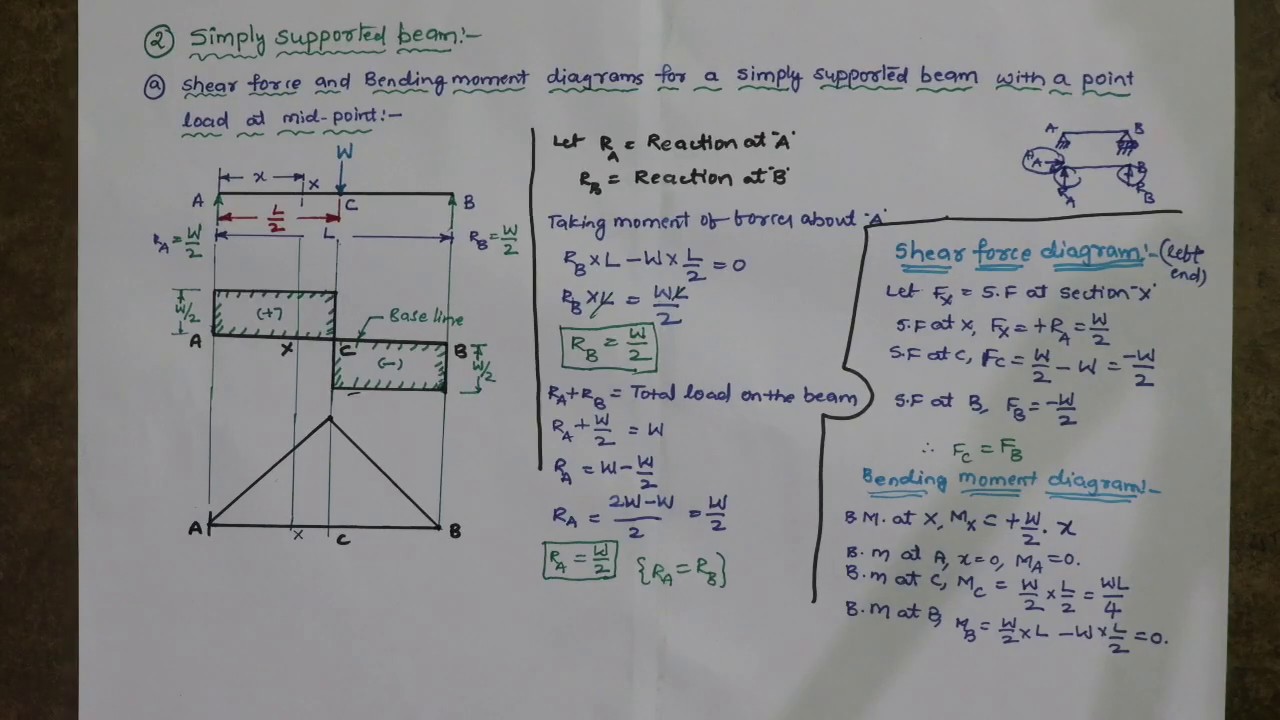 ② Simply supported beam:-
ⓐ Shear force and Bending moment diagrams for a simply supported beam with a point
load at mid-point:-
W
x
x
A
C
B
L/2
L
R_A = W/2
R_B = W/2
W/2
(+)
Base line
A
x
C
B
(-)
W/2
A
x
C
B
Let R_A = Reaction at "A"
R_B = Reaction at "B"
Taking moment of forces about "A"
R_B × L - W × L/2 = 0
R_B × L = WL/2
R_B = W/2
R_A + R_B = Total load on the beam
R_A + W/2 = W
R_A = W - W/2
R_A = (2W-W)/2 = W/2
R_A = W/2 {R_A = R_B}
A
B
H_A
B
R_A
R_B
Shear force diagram:- (left
end)
Let F_x = S.F at section "x"
S.F at x, F_x = +R_A = W/2
S.F at C, F_C = W/2 - W = -W/2
S.F at B, F_B = -W/2
∴ F_C = F_B
Bending moment diagram:-
B M. at x, M_x = +W/2 . x
B.m at A, x=0, M_A = 0.
B.m at C, M_C = W/2 × L/2 = WL/4
B.M at B, M_B = W/2 × L - W × L/2 = 0.